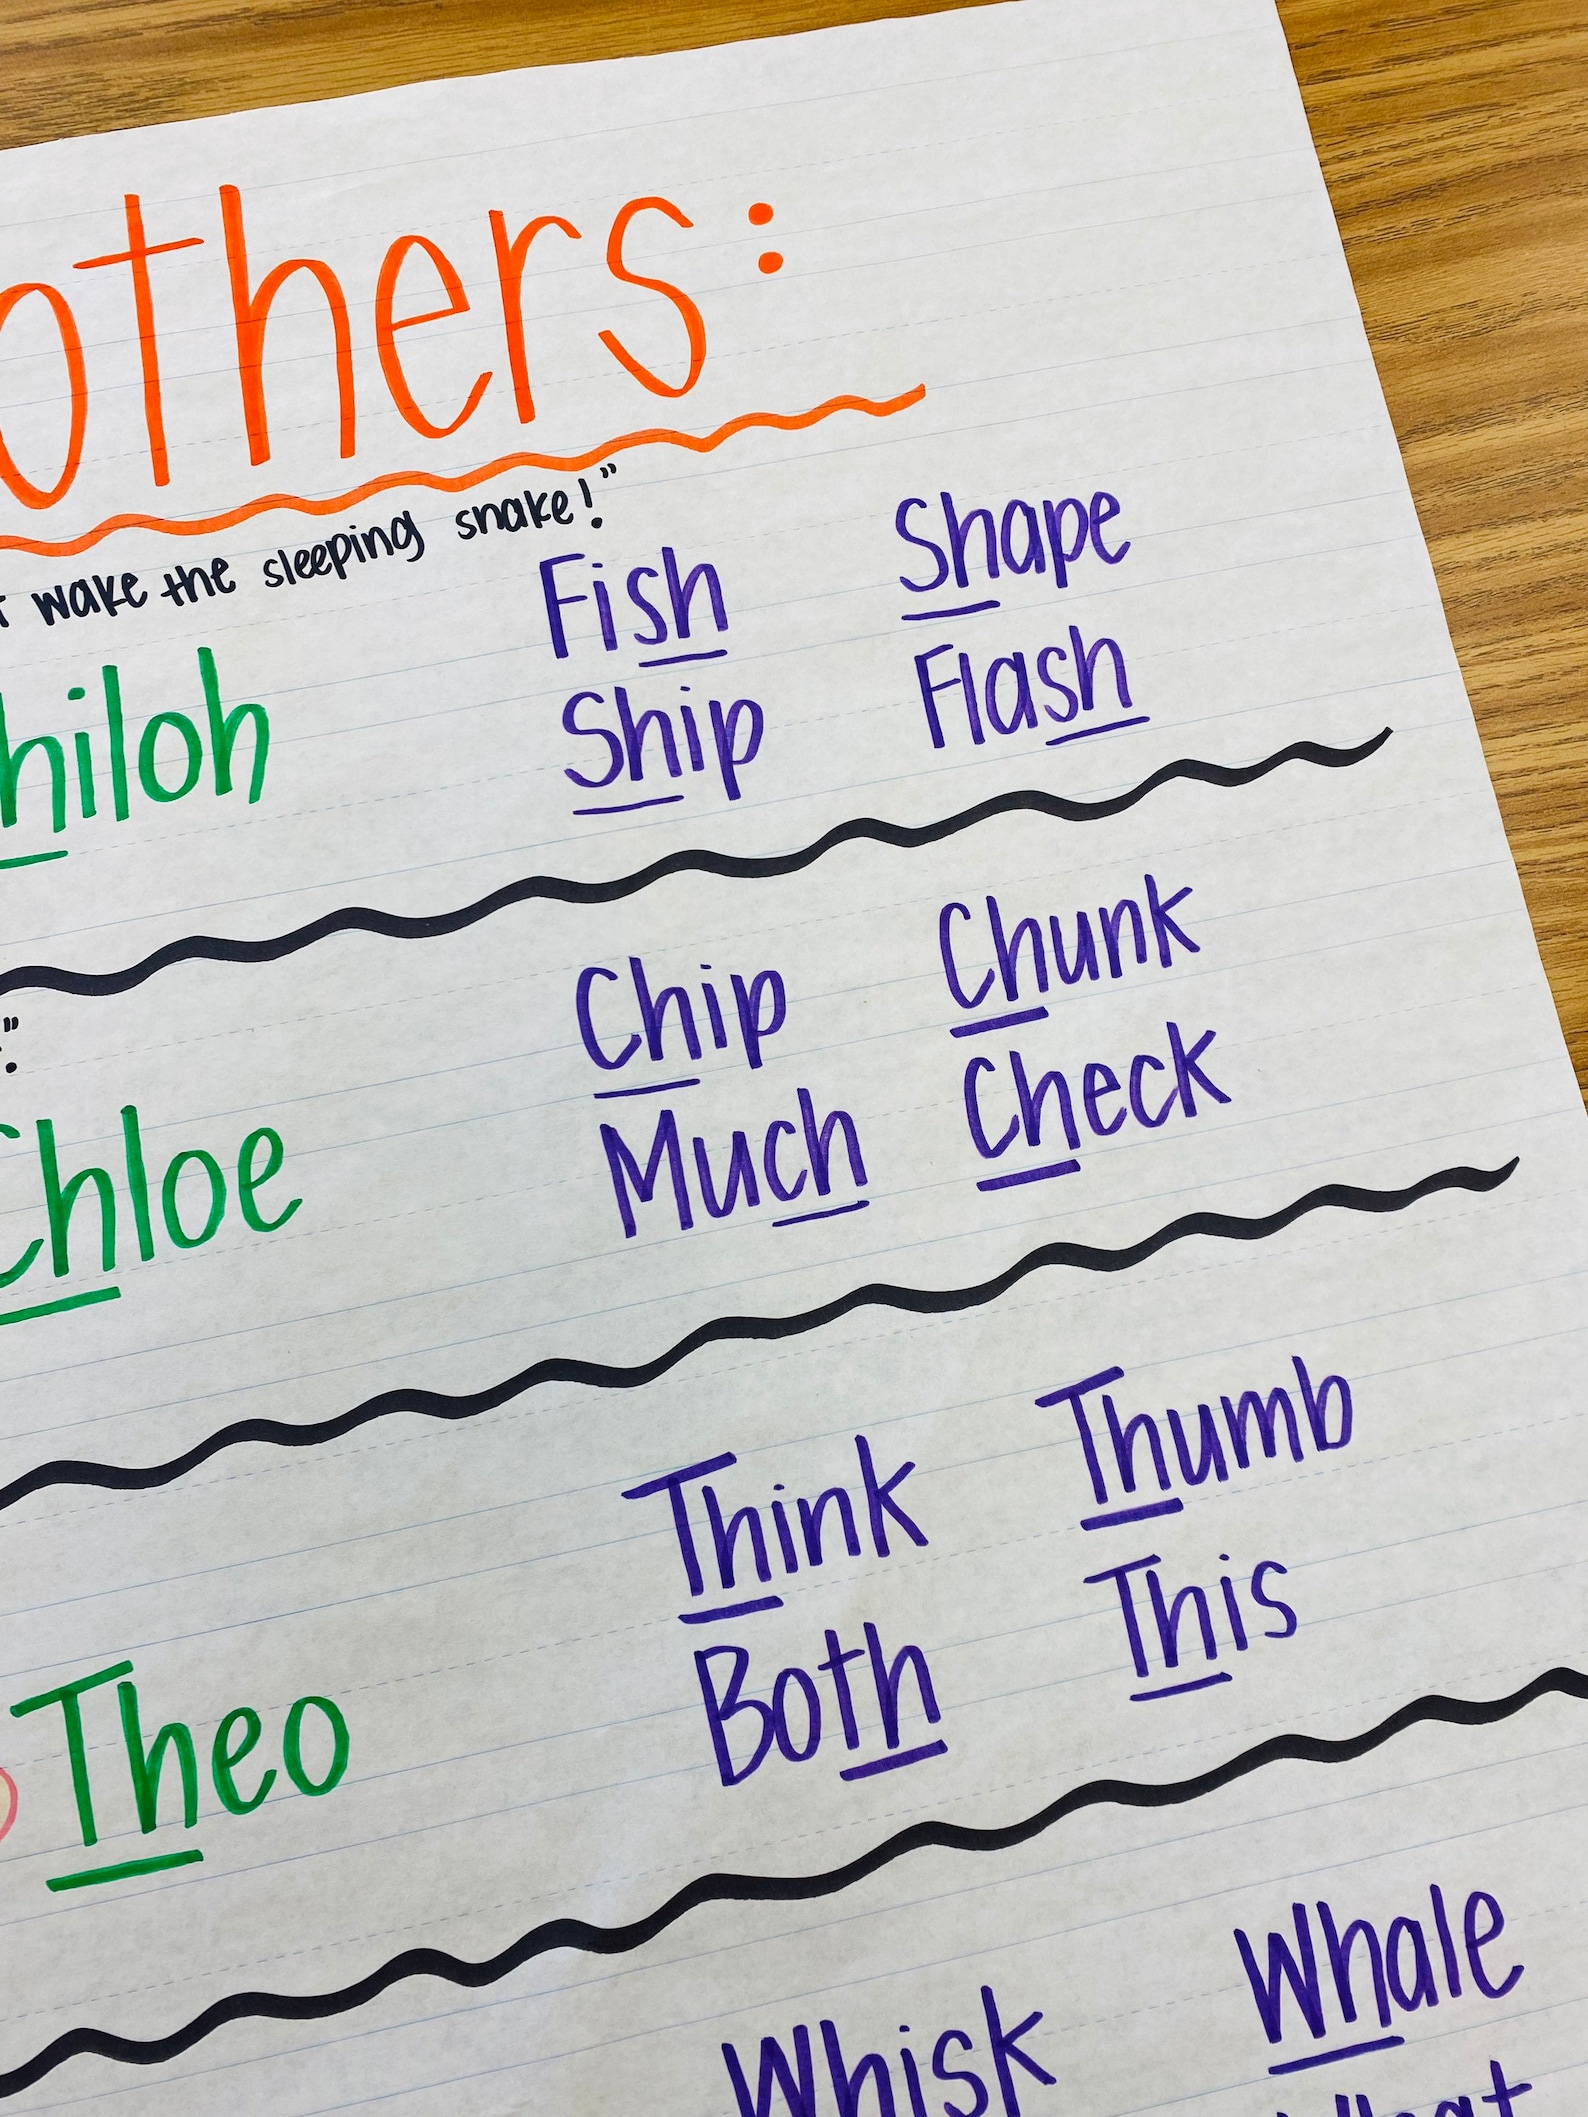 others:
wake the sleeping snake!"
Fish Shape
hiloh Ship Flash
Chip Chunk
Chloe Much Check
Think Thumb
Theo Both This
Whisk Whale
What